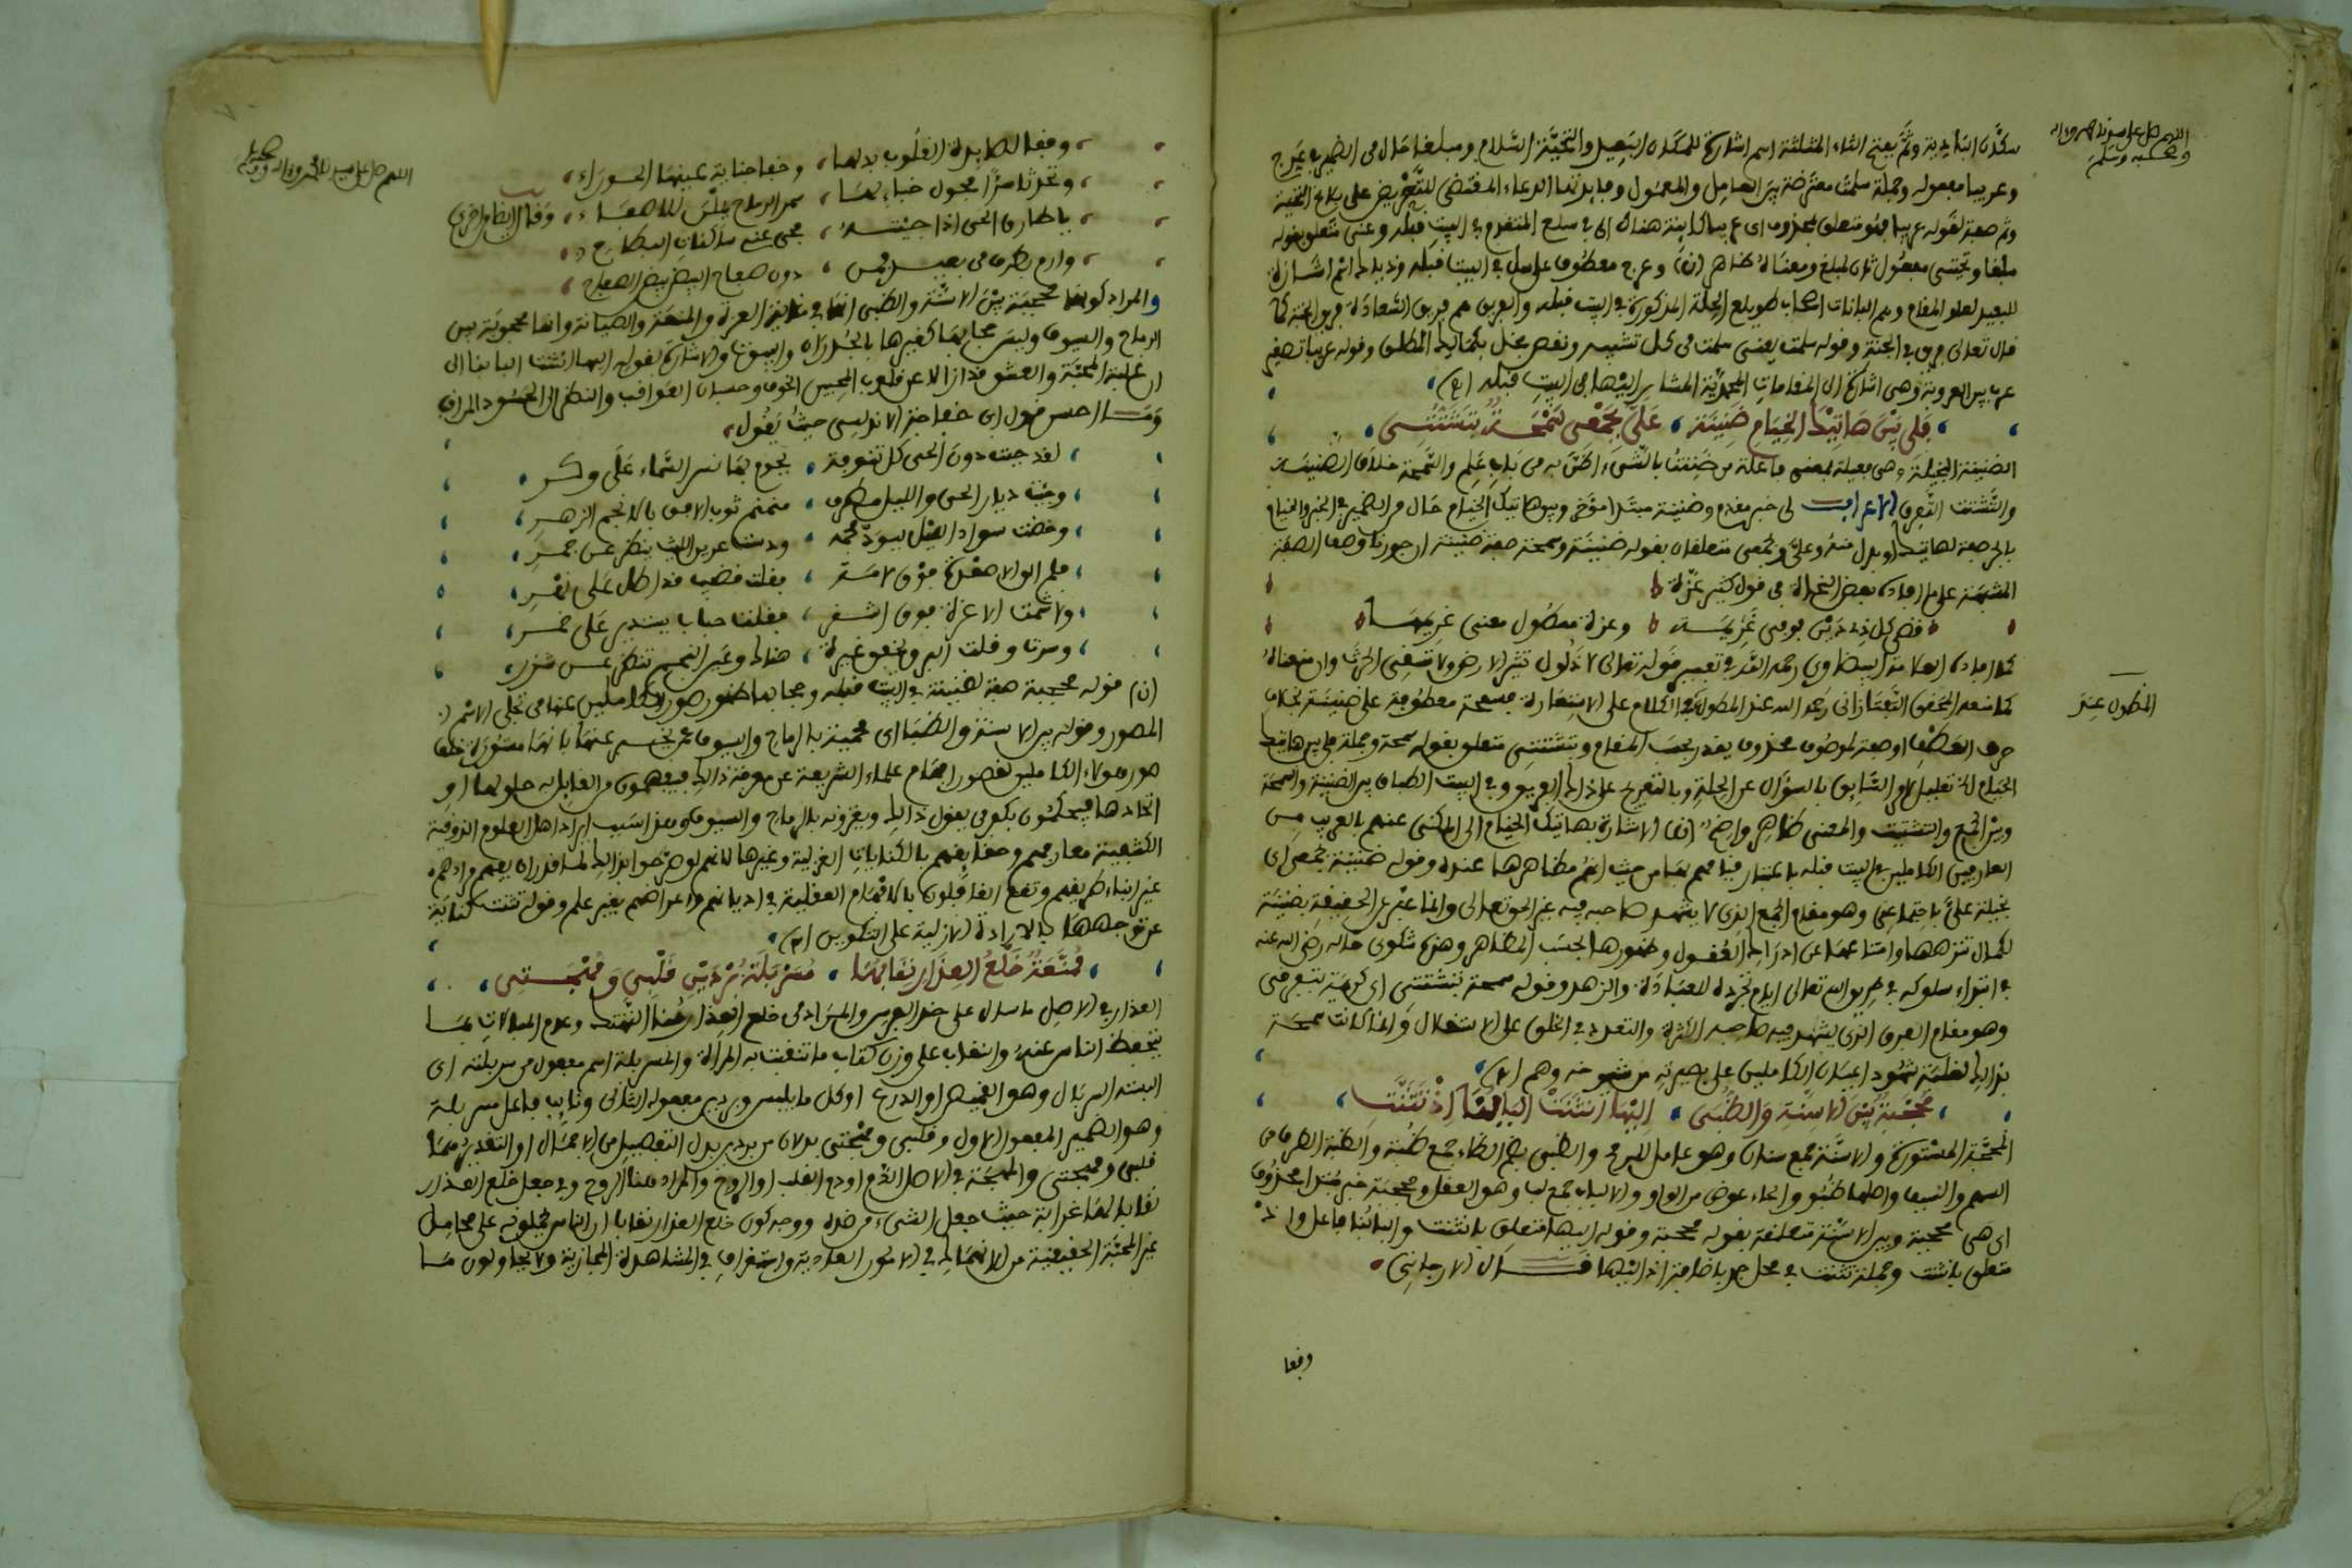 اللهم صل على سيدنا محمد وءاله
وصحبه وسلم
سكان البادية وثم بفتح الثاء المثلثة اسم اشارة للمكان البعيد والتحية السلام ومبلغا حال من الضمير في عرج
وعريبا مفعوله وجملة سلمت معترضة بين العامل والمعمول وفايدتها الدعاء المقتضى للتحريض على بلاغ التحية
وثم صفة لقوله عريبا فهو متعلق بمحذوف اى عريبا كاينة هناك اى في سلع المتقدم في البيت قبله وعنى متعلق بقوله
مبلغا وتحيتى مفعول ثان لمبلغ ومعناه ظاهر (ن) وعرج معطوف على سل في البيت قبله وذلك اسم اشارة
للبعيد لعلو المقام وهم البانات اصحاب طويلع الجلة المذكورة في البيت قبله والفريق هم فريق السعادة فريق الجنة كما
قال تعالى فريق في الجنة وقوله سلمت يعنى سلمت من كل تشبيه ونقص يخل بكمالك المطلق وقوله عريبا تصغير
عرب بين العروبة وهى اشارة الى المقامات المحمدية المشار اليها في البيت قبله (ه)
فلى بين هاتيك الخيام ضنينة ، على بجمعى سمحة بتشتتى
الضنينة البخيلة وهى فعيلة بمعنى فاعلة من ضننت بالشىء اضن به من باب علم والسمحة خلاف الضنينة
والتشتت التفرق الاعراب لى خبر مقدم وضنينة مبتدا مؤخر وبين هاتيك الخيام حال من الضمير في الخبر والخيام
بالجر صفة لهاتيك او بدل منه وعلى وبجمعى متعلقان بقوله ضنينة وسمحة صفة ضنينة ان جوزنا وصف الصفة
المشبهة على ما افاده بعض النحاة في قول كثير عزة
قضى كل ذى دين فوفى غريمه ، وعزة ممطول معنى غريمها
كما افاده العلامة البيضاوى رحمه الله في تفسير قوله تعالى لا ذلول تثير الارض ولا تسقى الحرث وان منعناه
كما منعه المحقق التفتازانى رحمه الله عند المطول الكلام على الاستعارة فسمحة معطوفة على ضنينة بحذف
المطول عند
حرف العطف او صفة لموصوف محذوف يقدر بحسب المقام وبتشتتى متعلق بقوله سمحة وجملة فلى بين هاتيك
الخيام الخ تعليل للامر السابق بالسؤال عن الحلة وبالتعريج على ذلك الفريق وفي البيت الطباق بين الضنينة والسمحة
وبين الجمع والتشتيت والمعنى ظاهر واضح (ن) الاشارة بهاتيك الخيام الى المكنى عنهم بالعريب من
العارفين الكاملين في البيت قبله باعتبار قيامهم بها من حيث انهم مظاهرها عنده وقوله ضنينة بجمعى اى
بخيلة على باجتماعى وهو مقام الجمع الذى لا يشهد صاحبه فيه غير الحق تعالى وانما عبر عن الحقيقة بضنينة
لكمال تنزهها وامتناعها عن ادراك العقول وظهورها بحسب المظاهر وهذه شكوى حاله رضى الله عنه
في ابتداء سلوكه في طريق الله تعالى ايام تجرده للعبادة والزهد وقوله سمحة بتشتتى اى كريمة بتفرقى
وهو مقام الفرق الذى يشهد فيه صاحبه الكثرة والتعدد في الخلق على الاستقلال وانما كانت سمحة
بذلك لغلبة شهود اعيان الكاملين على بصيرته من شهو منه وهم (ه)
محجبة بين الاسنة والظبى ، اليها انثنت البابنا اذ تثنت
المحجبة المستورة والاسنة جمع سنان وهو عامل الرمح والظبى بضم الظاء جمع ظبة والظبة الطرف من
السهم والسيف واصلها ظبو والهاء عوض من الواو والالباب جمع لب وهو العقل ومحجبة خبر مبتدا محذوف
اى هى محجبة وبين الاسنة متعلقة بقوله محجبة وقوله اليها متعلق بانثنت والبابنا فاعل واذ
متعلق بانثنت وجملة تثنت في محل جر باضافة اذ اليها قال الارجانى
وقفا
اللهم صل على سيدنا محمد وءاله وصحبه
وقفا لصايدة القلوب بدلها ، وخفا جناية عينها الحوراء
وتحدثا سرا فحول خبايها ، سمر الرماح يملن للاصغاء ، وقال ايضا اخرى
يا طارق الحى اذا جيته ، حى عنى ساكنات البطاح
وارم بطرف من بعيد فمن ، دون صفاح البيض بيض الصفاح
والمراد كونها محجبة بين الاسنة والظبى انها في غاية العزة والمنعة والصيانة وانها محجوبة بين
الرماح والسيوف وليس حجابها كغيرها بالجدران والبيوت والاشارة بقوله اليها انثنت البابنا الى
ان غلبة المحبة والعشق قد ازالا عن قلوب المحبين الخوف وحسبان العواقب والنظر الى الحسود المراقب
وما احسن قول ابن خفاجة الاندلسى حيث يقول
لقد جبت دون الحى كل تنوفة ، يحوم بها نسر السماء على وكر
وجيت ديار الحى والليل مطرق ، منمنم ثوب الافق بالانجم الزهر
وخضت سواد الليل يسود فحمه ، ودست عرين الليث ينظر عن جمر
فلم الق الا صعدة فوق لامة ، فقلت قضيب قد اطل على نهر
ولا شمت الا غرة فوق اشقر ، فقلت حباب يستدير على خمر
وسرت وقلب البرق يخفق غيرة ، هناك وعين النجم تنظر عن شزر
(ن) قوله محجبة صفة لضنينة في البيت قبله وحجابها ظهور صور الكاملين عنها في تجلى الاسم
المصور وقوله بين الاسنة والظبا اى محمية بالرماح والسيوف عمن يخبر عنها بانها مستورة خلف
صور هولاء الكاملين لقصور افهام علماء الشريعة عن معرفة ذلك فيفهمون من القايل به حلولها او
اتحادها فيحكمون بكفر من يقول ذلك ويغزونه بالرماح والسيوف وهذا سبب ايراد اهل العلوم الذوقية
الكشفية معارفهم وحقايقهم بالكنايات الغزلية وغيرها لانهم لو صرحوا بذلك لما قدر ان يفهم مرادهم
غير ابناء طريقهم وتقع الغافلون بالافهام العقلية في اديانهم واعراضهم بغير علم وقوله تثنت كناية
عن توجهها بالارادة الازلية على التكوين (ه)
ممنعة خلع العذار نقابها ، مسربلة بردين قلبى ومهجتى
العذار في الاصل ما سال على خد الفرس والمراد من خلع العذار هنا التهتك وعدم المبالات بما
يتحفظ الناس عنه والنقاب على وزن كتاب ما تنتقب به المراة والمسربلة اسم مفعول من سربلته اى
البسته السربال وهو القميص او الدرع او كل ما يلبس وبردين مفعوله الثانى ونايب فاعل مسربلة
وهو الضمير المفعول الاول وقلبى ومهجتى بدلان من بردين بدل التفصيل من الاجمال او التقدير هما
قلبى ومهجتى والمهجة في الاصل الدم او دم القلب او الروح والمراد هنا الروح وفي جعل خلع العذار
نقابا لها غرابة حيث جعل الشىء من ضده ووجه كون خلع العذار نقابا ان الناس يحملونه على محامل
غير المحبة الحقيقية من الانهماك في الامور العادية واستغراق في المشاهدة المجازية ولا يحاولون ما